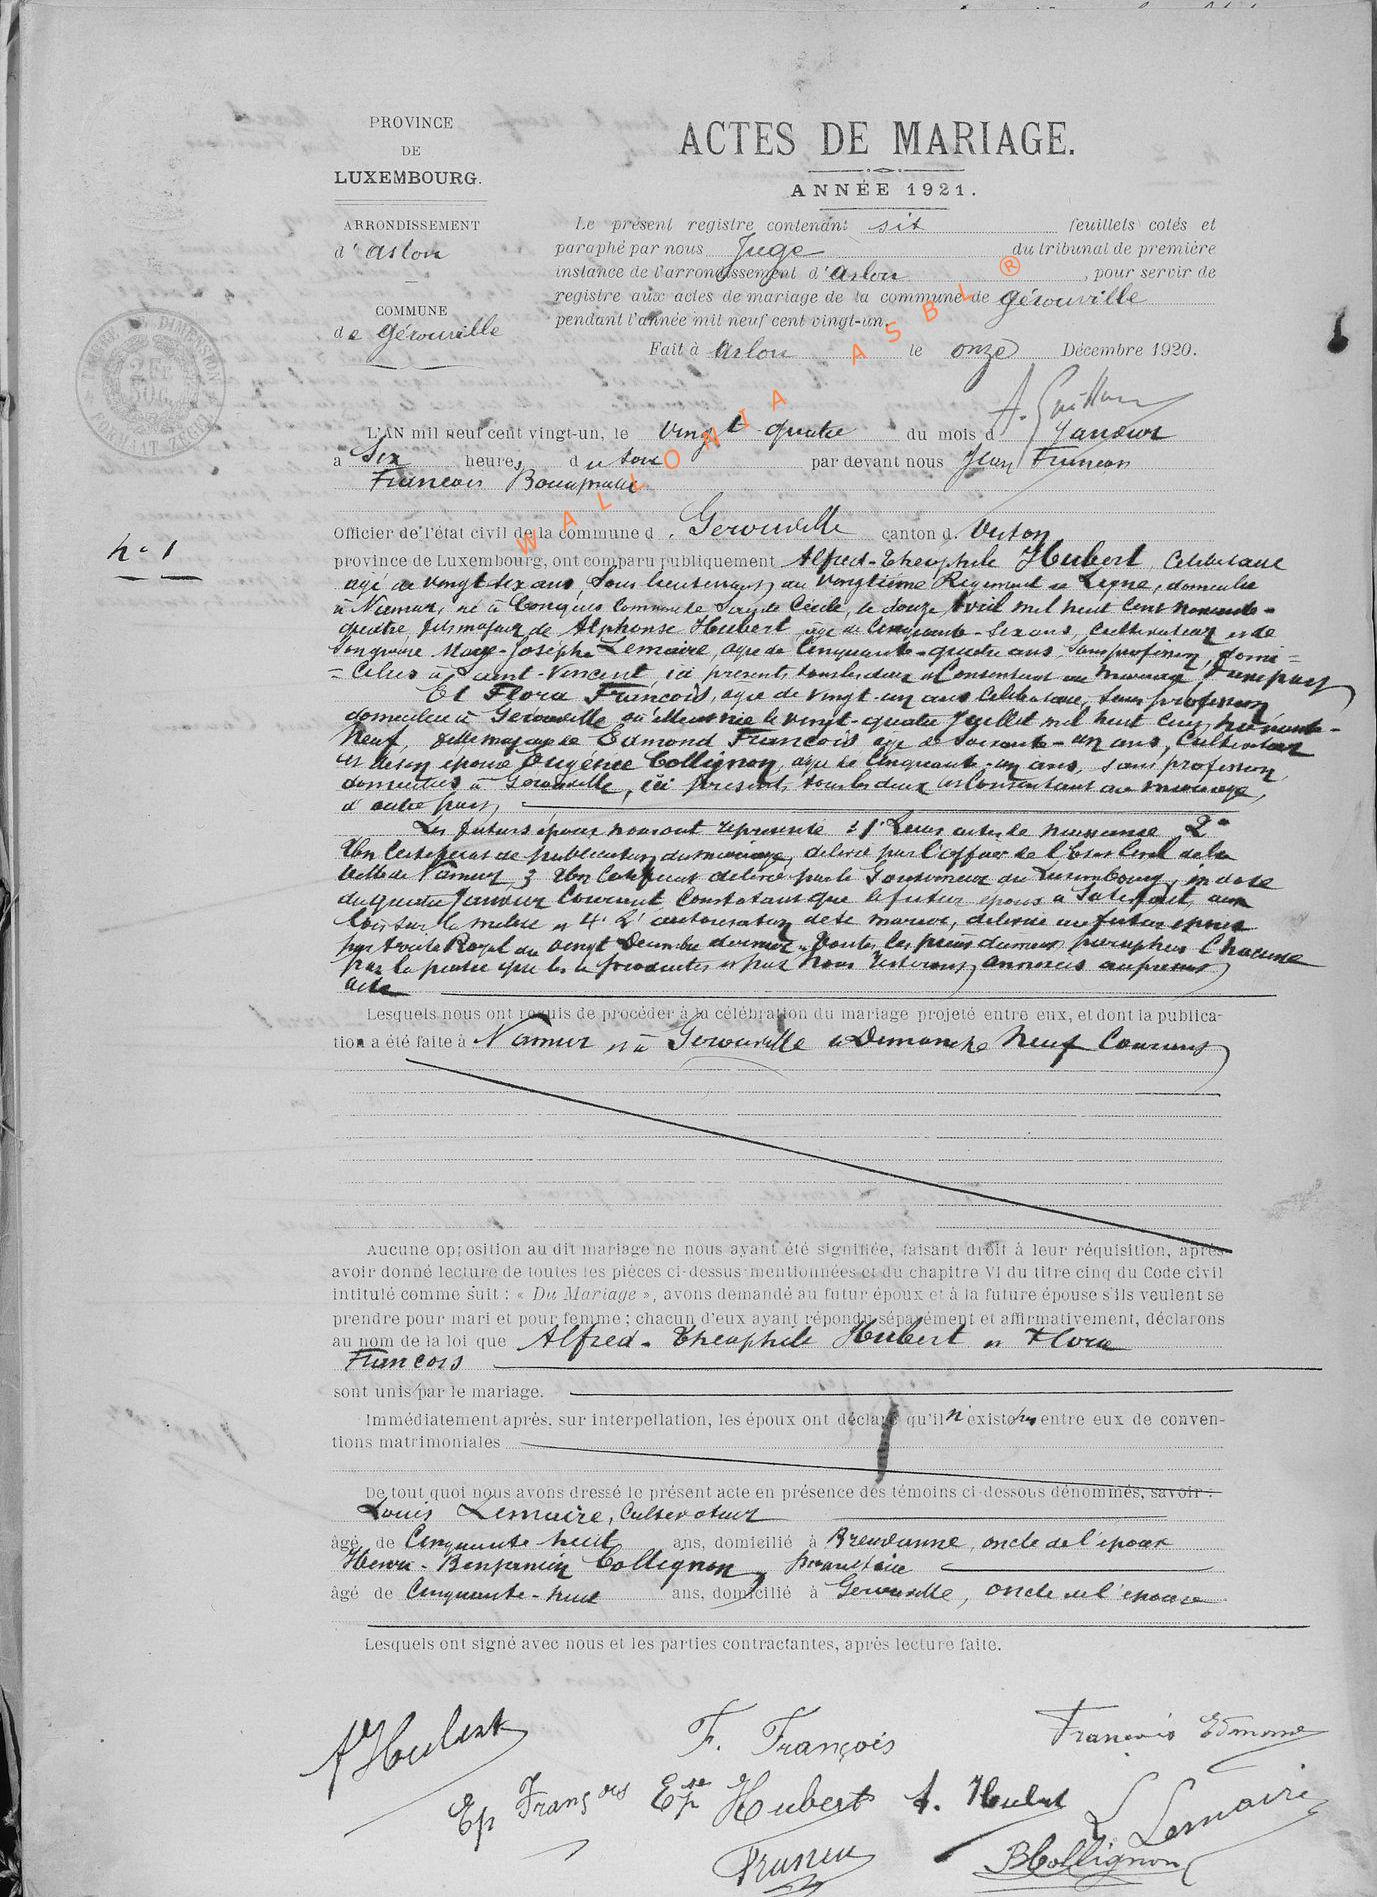 PROVINCE
DE
LUXEMBOURG.
ARRONDISSEMENT
d'Arlon
COMMUNE
de Gérouville
ACTES DE MARIAGE.
ANNÉE 1921.
Le présent registre contenant six feuillets cotés et
paraphé par nous Juge du tribunal de première
instance de l'arrondissement d'Arlon, pour servir de
registre aux actes de mariage de la commune de Gérouville
pendant l'année mil neuf cent vingt-un.
Fait à Arlon le onze Décembre 1920.
WALLONIA ASBL ®
L'AN mil neuf cent vingt-un, le vingt quatre du mois d Janvier
à Six heures du soir par devant nous Jean
François
Officier de l'état civil de la commune d. Gerouville canton d. Virton
n° 1
province de Luxembourg, ont comparu publiquement Alfred-Théophile Hubert, Celibataire
agé de vingt six ans, Sous lieutenant au Vingtième Régiment de Ligne, domicilié
à Namur, né à Conques Commune Ste Cécile, le douze Avril mil huit cent nonante-
quatre, fils majeur de Alphonse Hubert agé de Cinquante-Six ans, Cultivateur et de
Son épouse Marie-Joséphe Lemaire, agée de Cinquante-quatre ans, Sans profession, domi=
=ciliés à Saint-Vincent, ici présents tous les deux et Consentant au mariage d'une part,
Et Flora François, agée de vingt-un ans Celibataire, Sans profession
domiciliée à Gerouville où elle est née le vingt-quatre Juillet mil huit cent nonante-
Neuf, fille majeure de Edmond François agé de soixante-un ans, Cultivateur
et de son épouse Eugénie Collignon, agée de Cinquante-un ans, sans profession,
domiciliés à Gerouville, ici présents tous les deux et Consentant au mariage,
d'autre part,
Les futurs époux nous ont représenté : 1° Leurs actes de naissance 2°
Un Certificat de publication du mariage, délivré par l'officier de l'Etat Civil de la
Ville de Namur, 3 Un Certificat délivré par le Gouverneur du Luxembourg, en date
du quatre Janvier Courant Constatant que le futur époux a Satisfait aux
lois sur la milice et 4° L'autorisation de se marier, délivrée au futur époux
par Arrêté Royal du vingt Décembre dernier. Toutes les pièces dument paraphées Chacune
par la partie qui les a produites et par Nous resteront annexées au présent
acte
Lesquels nous ont requis de procéder à la célébration du mariage projeté entre eux, et dont la publica-
tion a été faite à Namur et à Gerouville le Dimanche Neuf Courant
Aucune opposition au dit mariage ne nous ayant été signifiée, faisant droit à leur réquisition, après
avoir donné lecture de toutes les pièces ci-dessus mentionnées et du chapitre VI du titre cinq du Code civil
intitulé comme suit : « Du Mariage », avons demandé au futur époux et à la future épouse s'ils veulent se
prendre pour mari et pour femme ; chacun d'eux ayant répondu séparément et affirmativement, déclarons
au nom de la loi que Alfred-Théophile Hubert et Flora
François
sont unis par le mariage.
Immédiatement après, sur interpellation, les époux ont déclaré qu'il n'existe pas entre eux de conven-
tions matrimoniales
De tout quoi nous avons dressé le présent acte en présence des témoins ci-dessous dénommés, savoir :
Louis Lemaire, Cultivateur
âgé de Cinquante huit ans, domicilié à oncle de l'époux
Henri-Benjamin Collignon, propriétaire
âgé de Cinquante-huit ans, domicilié à Gerouville, oncle de l'épouse
Lesquels ont signé avec nous et les parties contractantes, après lecture faite.
A Hubert
F. François
François Edmond
Ep François
Epse Hubert
A. Hubert
L Lemaire
B Collignon